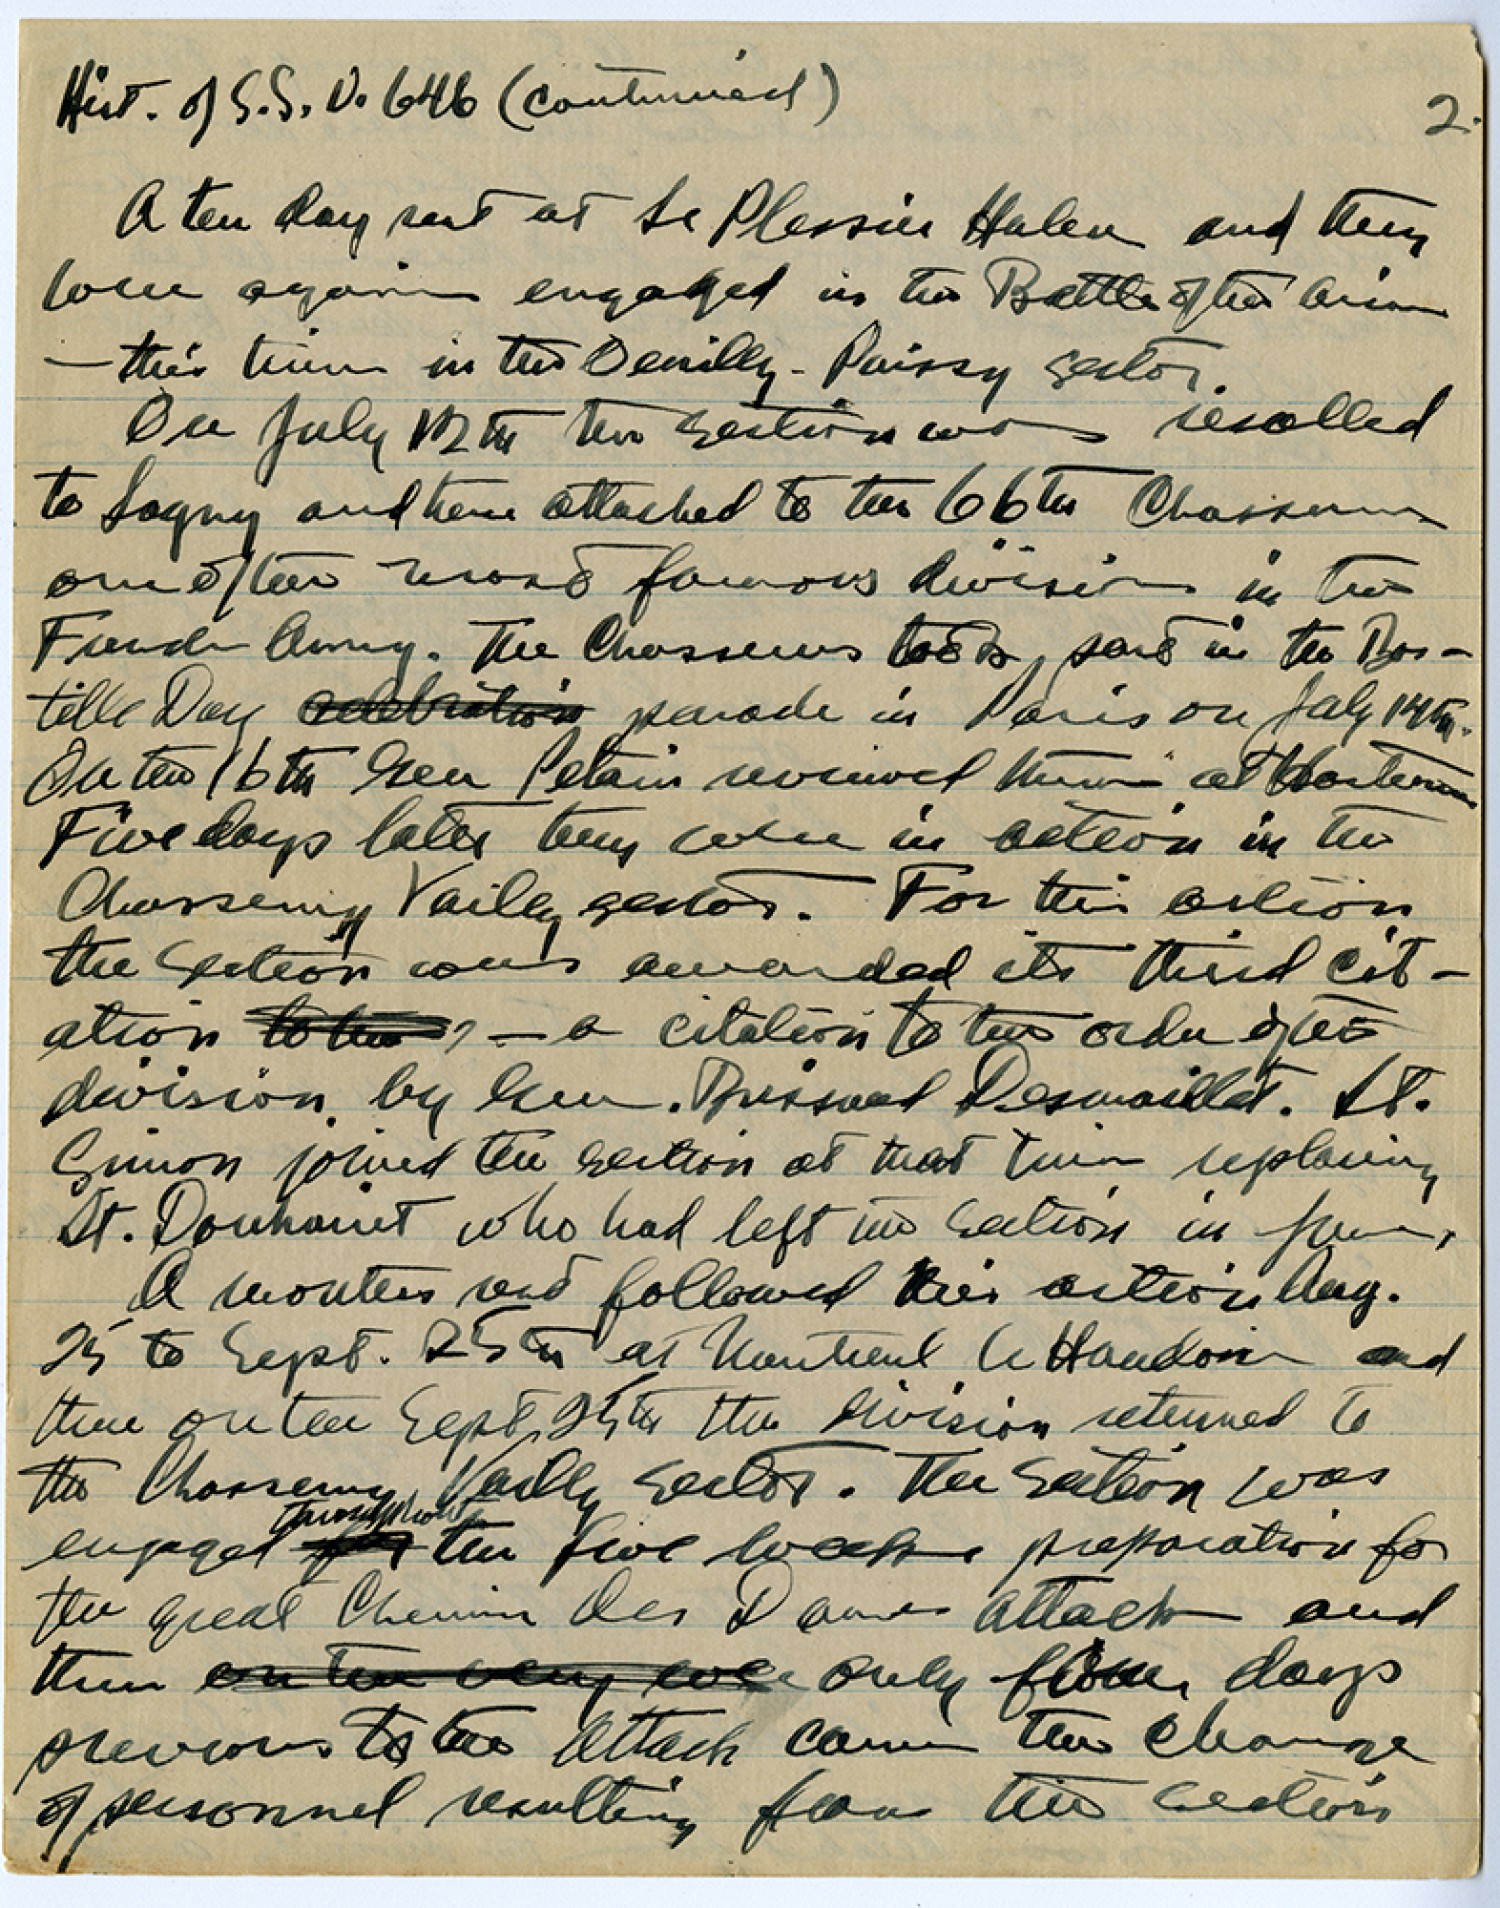 Hist. of S.S.U. 646 (continued)
2.
A ten day rest at Le Plessier Huleu and they
were again engaged in the Battle of the Aisne
— this time in the Oeuilly - Paissy sector.
On July 12th the section was recalled
to Lagny and there attached to the 66th Chasseurs
one of the most famous divisions in the
French Army. The Chasseurs took part in the Bas-
tille Day celebration parade in Paris on July 14th.
On the 16th Gen Petain reviewed them at
Five days later they were in action in the
Chassemy Vailly sector. For this action
the section was awarded its third cit-
ation to the , — a citation to the order of the
division by Gen. Brissaud Desmaillet. Lt.
Simon joined the section at that time replacing
Lt. who had left the section in June.
A months rest followed this action Aug.
25 to Sept. 25th at Montreuil and
then on the Sept. 25th the division returned to
the Chassemy Vailly sector. The section was
throughout
engaged for the five weeks preparation for
the great Chemin des Dames attack and
then on the very eve only four days
previous to the attack came the change
of personnel resulting from the section's